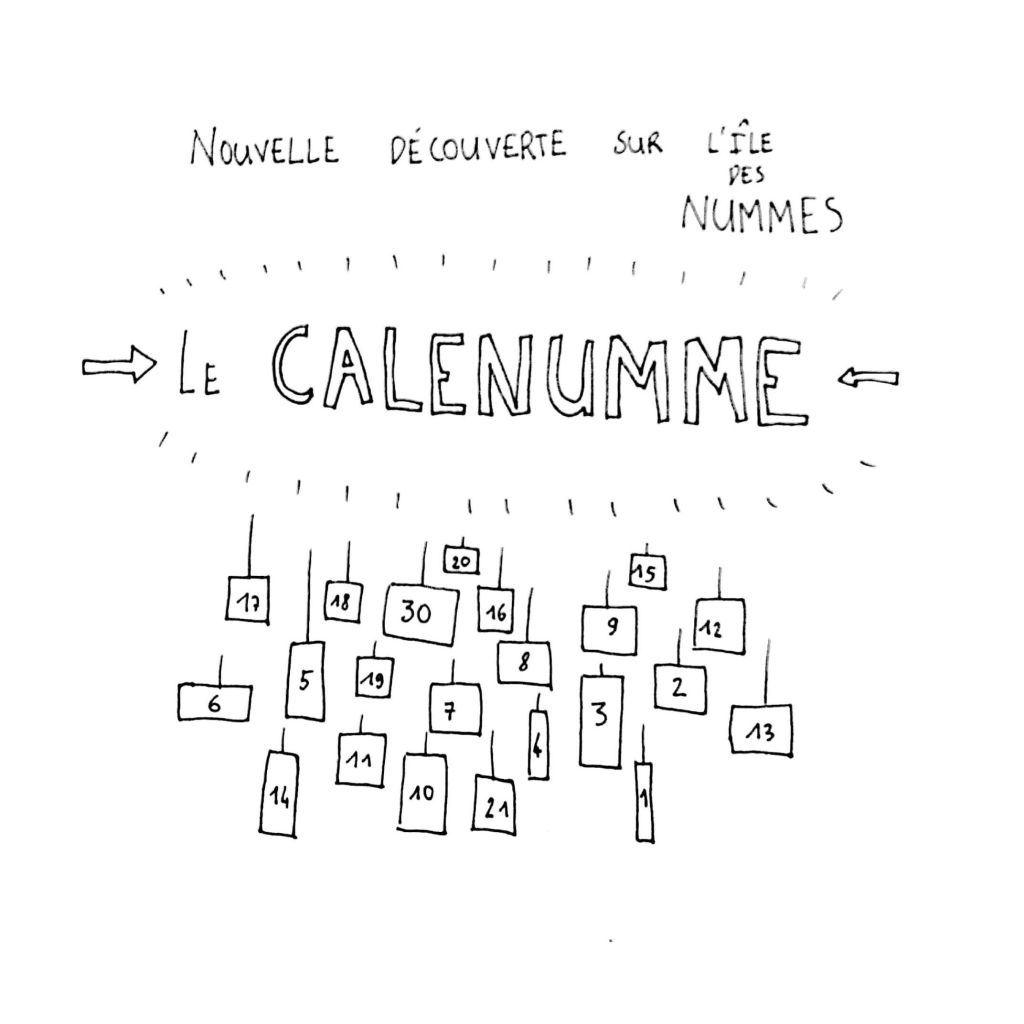 NOUVELLE DÉCOUVERTE SUR L'ÎLE
DES
NUMMES
LE CALENUMME
20
15
17
18
30
16
9
12
8
5
19
6
7
2
3
13
4
11
14
10
21
1